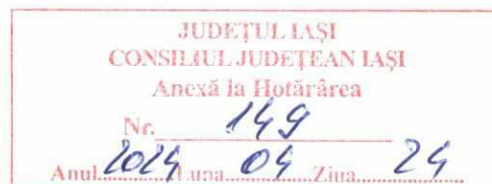 JUDEȚUL IAȘI
CONSILIUL JUDEȚEAN IAȘI
Anexă la Hotărârea
Nr. 149
Anul 2024 Luna 04 Ziua 24